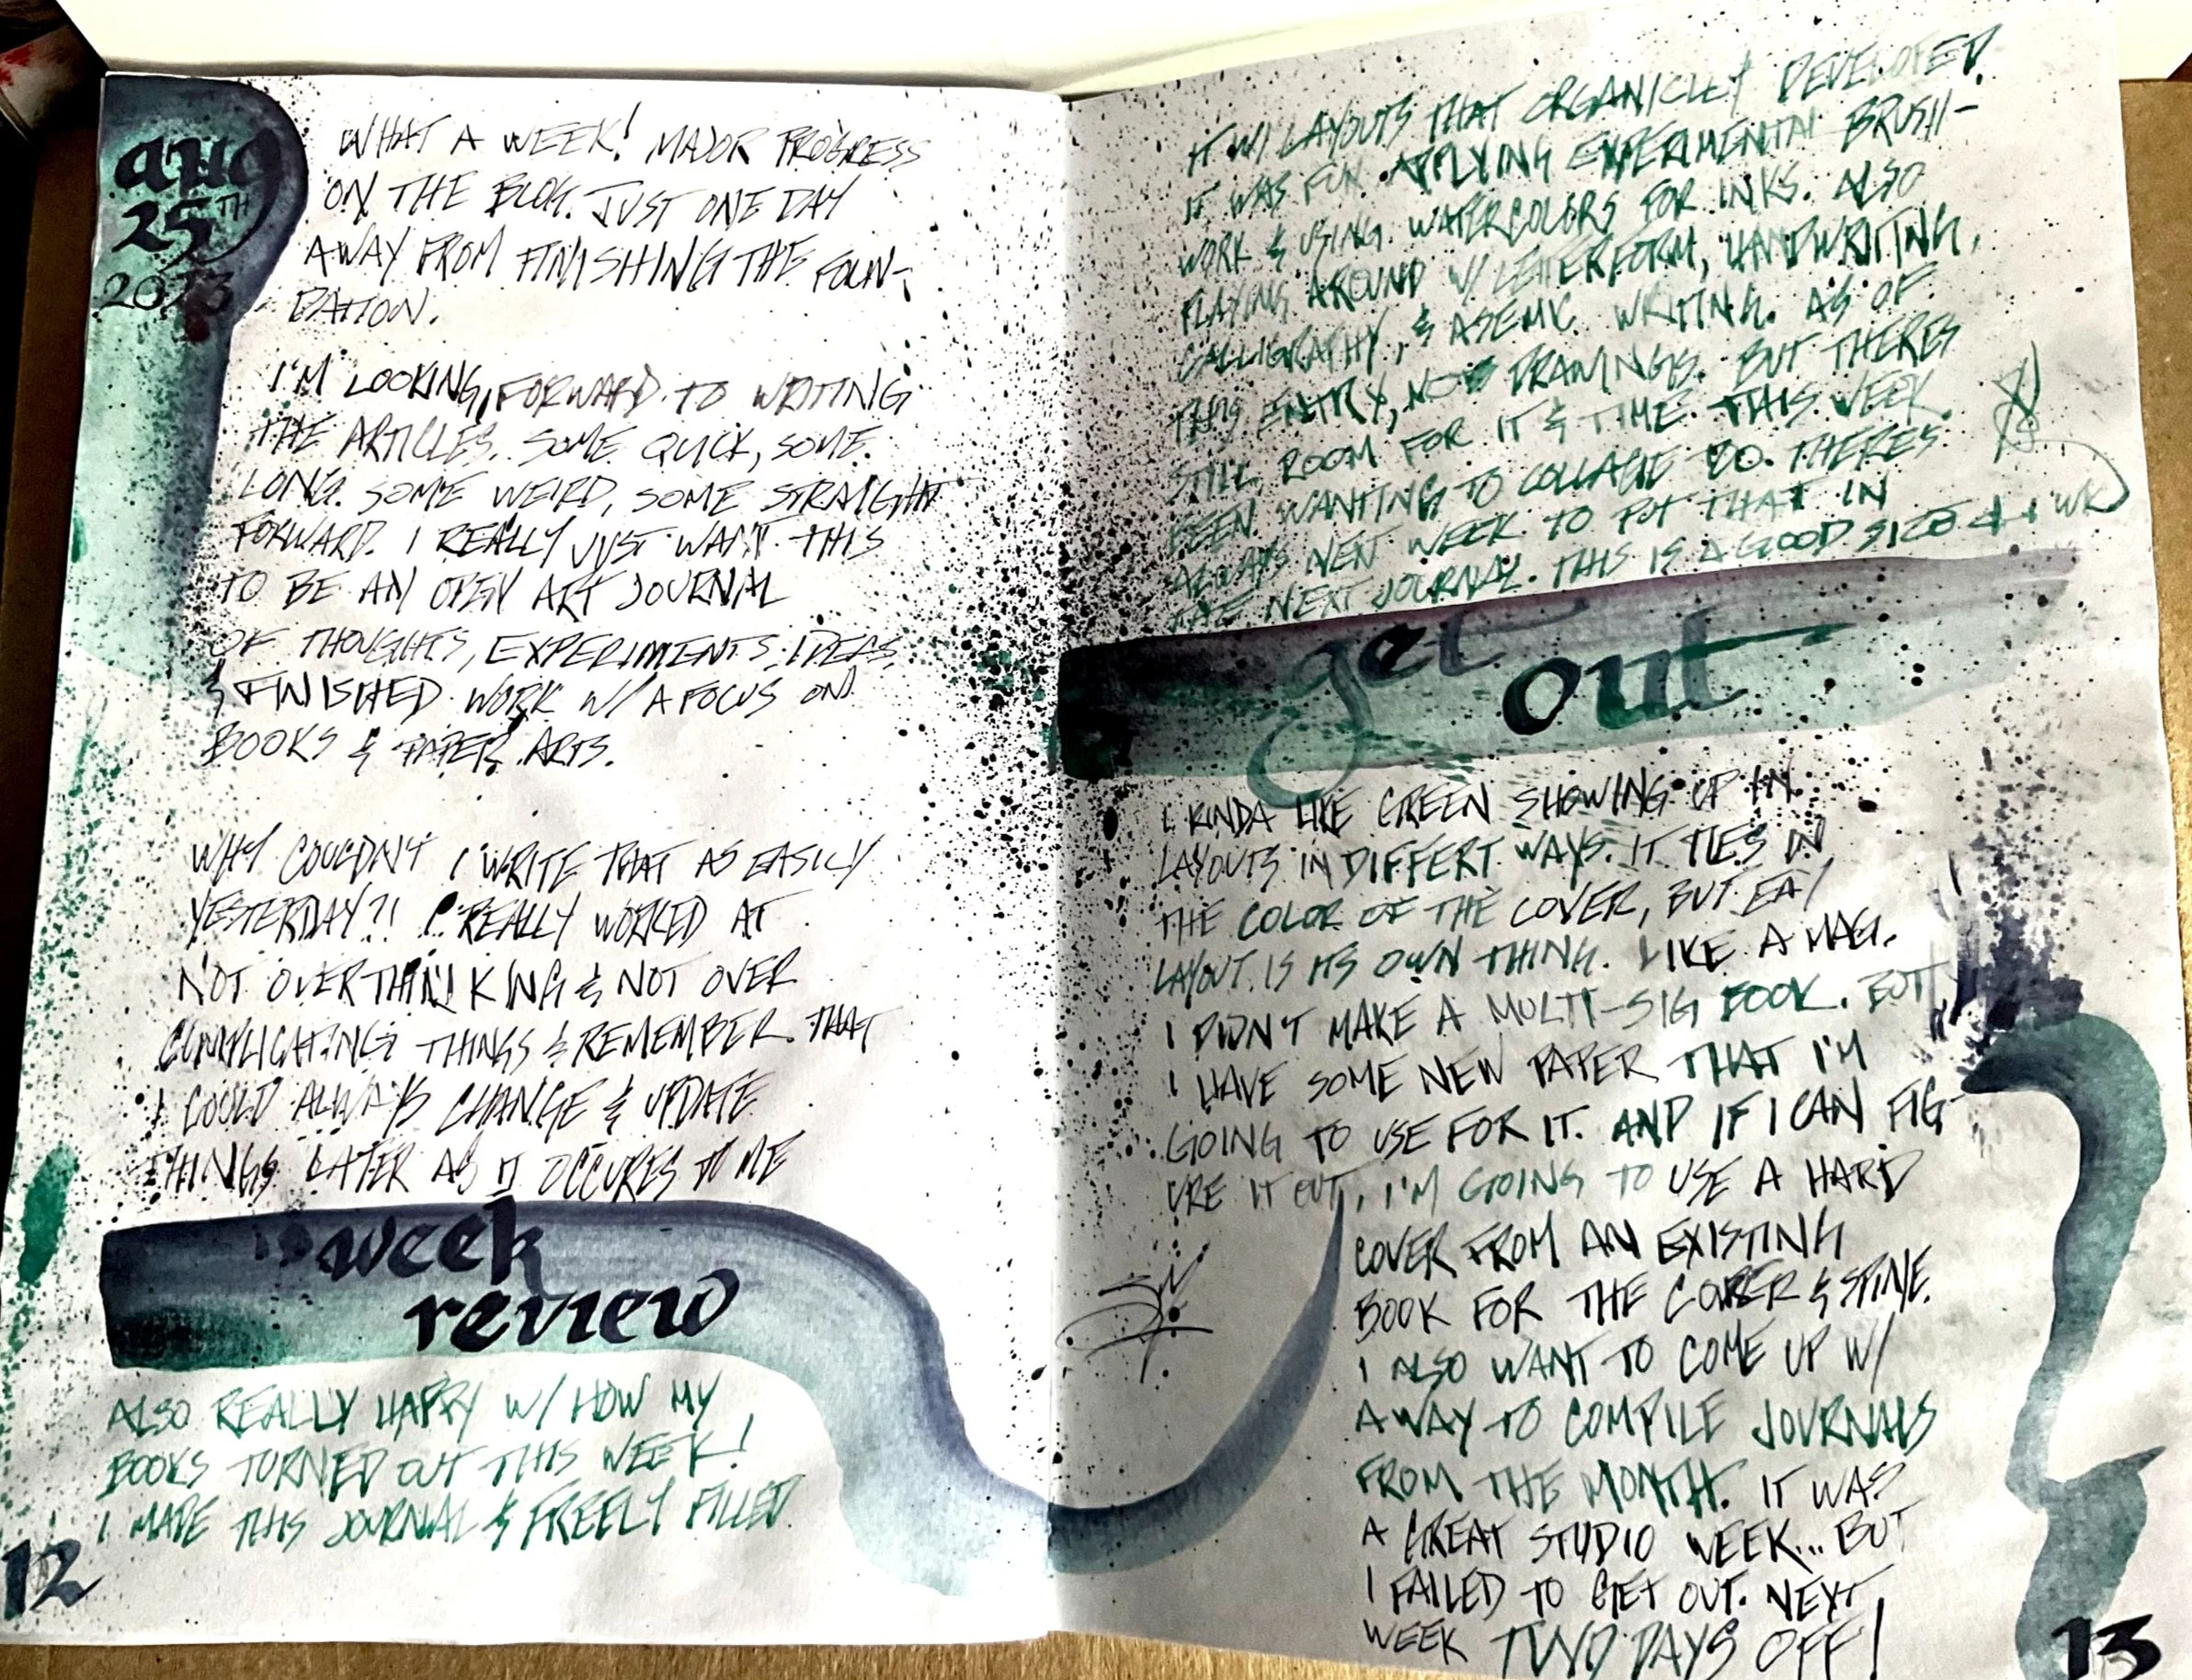 aug
25TH
2023
WHAT A WEEK! MAJOR PROGRESS
ON THE BLOG. JUST ONE DAY
AWAY FROM FINISHING THE FOUN-
DATION.
I'M LOOKING FORWARD TO WRITING
THE ARTICLES. SOME QUICK, SOME
LONG. SOME WEIRD, SOME STRAIGHT
FORWARD. I REALLY JUST WANT THIS
TO BE AN OPEN ART JOURNAL
OF THOUGHTS, EXPERIMENTS, IDEAS,
& FINISHED WORK W/ A FOCUS ON
BOOKS & PAPER ARTS.
WHY COULDN'T I WRITE THAT AS EASILY
YESTERDAY?! I REALLY WORKED AT
NOT OVERTHINKING & NOT OVER
COMPLICATING THINGS & REMEMBER THAT
I COULD ALWAYS CHANGE & UPDATE
THINGS LATER AS IT OCCURES TO ME
week
review
ALSO REALLY HAPPY W/ HOW MY
BOOKS TURNED OUT THIS WEEK!
I MADE THIS JOURNAL & FREELY FILLED
12
IT W/ LAYOUTS THAT ORGANICLLY DEVELOPED.
IT WAS FUN APPLYING EXPERIMENTAL BRUSH-
WORK & USING WATERCOLORS FOR INKS. ALSO
PLAYING AROUND W/ LETTERFORM, HANDWRITING,
CALLIGRAPHY, & ASEMIC WRITING. AS OF
THIS ENTRY, NO DRAWINGS. BUT THERES
STILL ROOM FOR IT & TIME THIS WEEK.
BEEN WANTING TO COLLAGE TOO. THERES
ALWAYS NEXT WEEK TO PUT THAT IN
THE NEXT JOURNAL. THIS IS A GOOD SIZE 4 1 WK
get
out
I KINDA LIKE GREEN SHOWING UP IN
LAYOUTS IN DIFFERT WAYS. IT TIES IN
THE COLOR OF THE COVER, BUT EA/
LAYOUT IS ITS OWN THING. LIKE A MAG.
I DIDN'T MAKE A MULTI-SIG BOOK. BUT
I HAVE SOME NEW PAPER THAT I'M
GOING TO USE FOR IT. AND IF I CAN FIG-
URE IT OUT, I'M GOING TO USE A HARD
COVER FROM AN EXISTING
BOOK FOR THE COVER & SPINE.
I ALSO WANT TO COME UP W/
A WAY TO COMPILE JOURNALS
FROM THE MONTH. IT WAS
A GREAT STUDIO WEEK... BUT
I FAILED TO GET OUT. NEXT
WEEK TWO DAYS OFF!
13